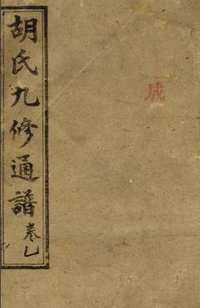 胡氏九修通譜
卷乙
成